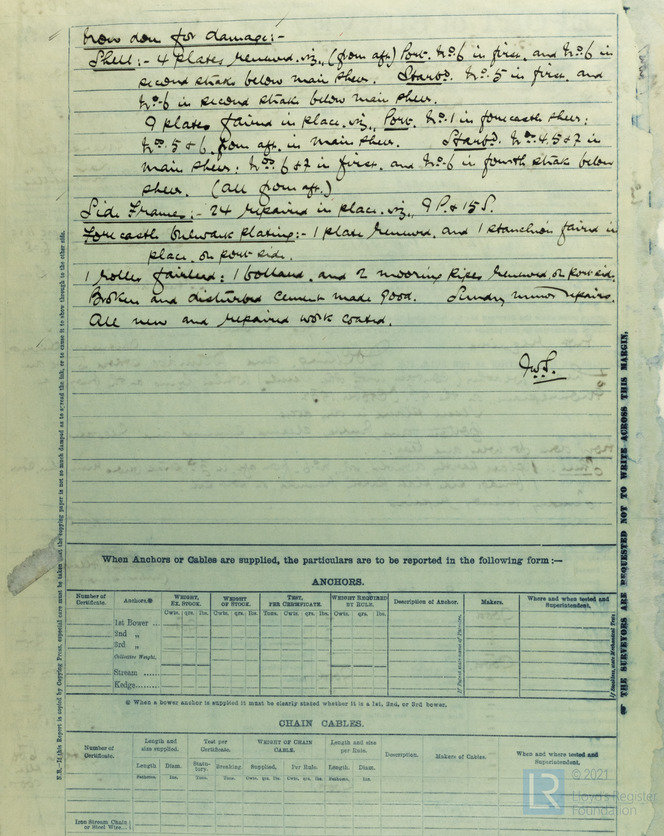 Now done for damage:-
Shell:- 4 plates renewed. viz., (from aft) Port. No. 6 in first. and No. 6 in
second strake below main sheer. Starbd. No. 5 in first. and
No. 6 in second strake below main sheer.
9 plates faired in place. viz., Port. No. 1 in forecastle sheer;
Nos. 5 & 6. from aft. in main sheer. Starbd. Nos. 4.5 & 7 in
main sheer; Nos. 6 & 7 in first. and No. 6 in fourth strake below
sheer. (all from aft.)
Side Frames:- 24 repaired in place. viz., 9 P. & 15 S.
Forecastle bulwark plating:- 1 plate renewed. and 1 stanchion faired in
place. on port side.
1 roller fairlead; 1 bollard. and 2 mooring pipes renewed. on port side.
Broken and disturbed cement made good. Sundry minor repairs.
All new and repaired work coated.
When Anchors or Cables are supplied, the particulars are to be reported in the following form :—
ANCHORS.
Number of Certificate. Anchors.* WEIGHT, EX. STOCK. WEIGHT OF STOCK. TEST, PER CERTIFICATE. WEIGHT REQUIRED BY RULE. Description of Anchor. Makers. Where and when tested and Superintendent.
Cwts. qrs. lbs. Cwts. qrs. lbs. Tons. Cwts. qrs. lbs. Cwts. qrs. lbs.
1st Bower ...
2nd „
3rd „
Collective Weight.
Stream ......
Kedge........
* When a bower anchor is supplied it must be clearly stated whether it is a 1st, 2nd, or 3rd bower.
CHAIN CABLES.
Number of Certificate. Length and size supplied. Test per Certificate. WEIGHT OF CHAIN CABLE. Length and size per Rule. Description. Makers of Cables. When and where tested and Superintendent.
Length Diam. Statutory. Breaking. Supplied. Per Rule. Length. Diam.
Fathoms. Ins. Tons. Tons. Cwts. qrs. lbs. Cwts. qrs. lbs. Fathoms. Ins.
Iron Stream Chain or Steel Wire...
N.B.—If this Report is copied by Copying Press, especial care must be taken that the copying paper is not so much damped as to spread the ink, or to cause it to show through to the other side.
THE SURVEYORS ARE REQUESTED NOT TO WRITE ACROSS THIS MARGIN.
LR
© 2021
Lloyd's Register
Foundation